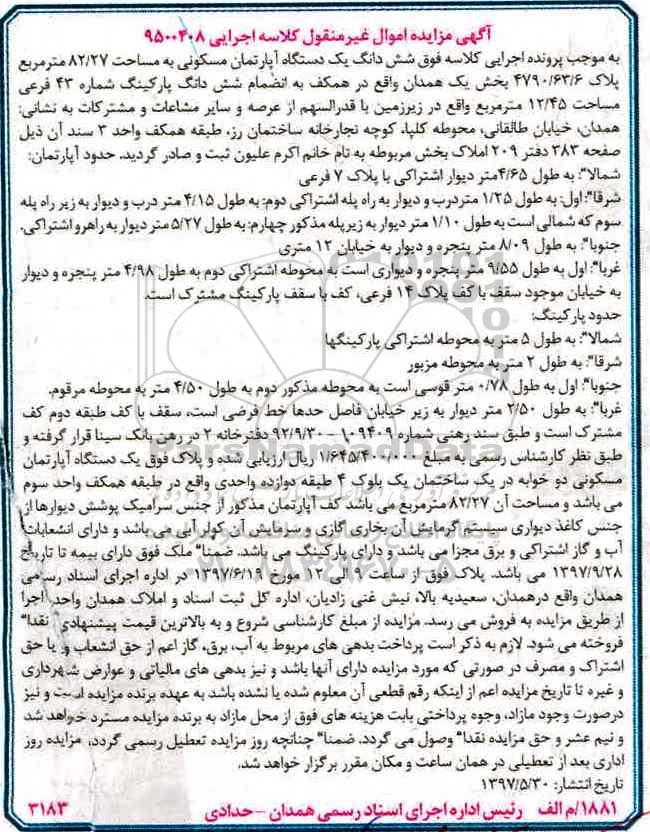 آگهی مزایده اموال غیرمنقول کلاسه اجرایی ۹۵۰۰۴۰۸
به موجب پرونده اجرایی کلاسه فوق شش دانگ یک دستگاه آپارتمان مسکونی به مساحت ۸۲/۲۷ مترمربع
پلاک ۴۷۹۰/۶۳/۶ بخش یک همدان واقع در همکف به انضمام شش دانگ پارکینگ شماره ۴۳ فرعی
مساحت ۱۲/۴۵ مترمربع واقع در زیرزمین با قدرالسهم از عرصه و سایر مشاعات و مشترکات به نشانی:
همدان، خیابان طالقانی، محوطه کلپا، کوچه نجارخانه ساختمان رز، طبقه همکف واحد ۳ سند آن ذیل
صفحه ۳۸۳ دفتر ۲۰۹ املاک بخش مربوطه به نام خانم اکرم علیون ثبت و صادر گردید. حدود آپارتمان:
شمالا": به طول ۴/۶۵متر دیوار اشتراکی با پلاک ۷ فرعی
شرقا": اول: به طول ۱/۲۵ متردرب و دیوار به راه پله اشتراکی دوم: به طول ۴/۱۵ متر درب و دیوار به زیر راه پله
سوم که شمالی است به طول ۱/۱۰ متر دیوار به زیرپله مذکور چهارم: به طول ۵/۲۷ متر دیوار به راهرو اشتراکی.
جنوبا": به طول ۸/۰۹ متر پنجره و دیوار به خیابان ۱۲ متری
غربا": اول به طول ۹/۵۵ متر پنجره و دیواری است به محوطه اشتراکی دوم به طول ۴/۹۸ متر پنجره و دیوار
به خیابان موجود سقف با کف پلاک ۱۴ فرعی، کف با سقف پارکینگ مشترک است.
حدود پارکینگ:
شمالا": به طول ۵ متر به محوطه اشتراکی پارکینگها
شرقا": به طول ۲ متر به محوطه مزبور
جنوبا": اول به طول ۰/۷۸ متر قوسی است به محوطه مذکور دوم به طول ۴/۵۰ متر به محوطه مرقوم.
غربا": به طول ۲/۵۰ متر دیوار به زیر خیابان فاصل حدها خط فرضی است، سقف با کف طبقه دوم کف
مشترک است و طبق سند رهنی شماره ۱۰۹۴۰۹ – ۹۲/۹/۳۰ دفترخانه ۲ در رهن بانک سینا قرار گرفته و
طبق نظر کارشناس رسمی به مبلغ ۱/۶۴۵/۴۰۰/۰۰۰ ریال ارزیابی شده و پلاک فوق یک دستگاه آپارتمان
مسکونی دو خوابه در یک ساختمان یک بلوک ۴ طبقه دوازده واحدی واقع در طبقه همکف واحد سوم
می باشد و مساحت آن ۸۲/۲۷ مترمربع می باشد کف آپارتمان مذکور از جنس سرامیک پوشش دیوارها از
جنس کاغذ دیواری سیستم گرمایش آن بخاری گازی و سرمایش آن کولر آبی می باشد و دارای انشعابات
آب و گاز اشتراکی و برق مجزا می باشد و دارای پارکینگ می باشد. ضمنا" ملک فوق دارای بیمه تا تاریخ
۱۳۹۷/۹/۲۸ می باشد. پلاک فوق از ساعت ۹ الی ۱۲ مورخ ۱۳۹۷/۶/۱۹ در اداره اجرای اسناد رسمی
همدان واقع درهمدان، سعیدیه بالا، نبش غنی زادیان، اداره کل ثبت اسناد و املاک همدان واحد اجرا
از طریق مزایده به فروش می رسد. مزایده از مبلغ کارشناسی شروع و به بالاترین قیمت پیشنهادی نقدا"
فروخته می شود. لازم به ذکر است پرداخت بدهی های مربوط به آب، برق، گاز اعم از حق انشعاب و یا حق
اشتراک و مصرف در صورتی که مورد مزایده دارای آنها باشد و نیز بدهی های مالیاتی و عوارض شهرداری
و غیره تا تاریخ مزایده اعم از اینکه رقم قطعی آن معلوم شده یا نشده باشد به عهده برنده مزایده است و نیز
درصورت وجود مازاد، وجوه پرداختی بابت هزینه های فوق از محل مازاد به برنده مزایده مسترد خواهد شد
و نیم عشر و حق مزایده نقدا" وصول می گردد. ضمنا" چنانچه روز مزایده تعطیل رسمی گردد، مزایده روز
اداری بعد از تعطیلی در همان ساعت و مکان مقرر برگزار خواهد شد.
تاریخ انتشار: ۱۳۹۷/۵/۳۰
۱۸۸۱/م الف رئیس اداره اجرای اسناد رسمی همدان – حدادی ۳۱۸۳
ParsNamadData